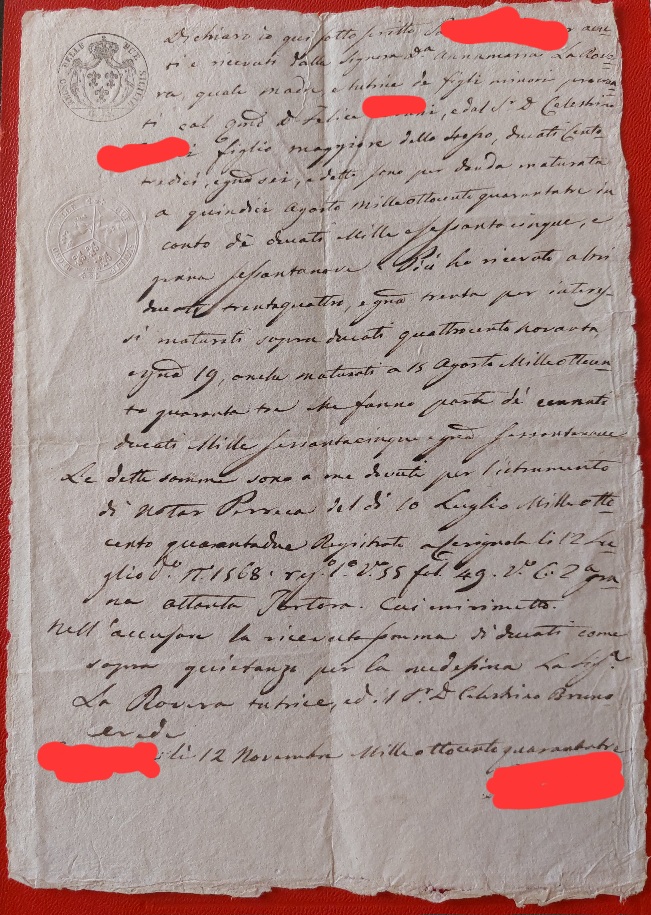 REGNO DELLE DUE SICILIE
Dichiaro io qui sotto scritto aver
ti e ricevuti dalla Signora D.ª Annamaria La Rov=
ra, quale madre e tutrice de figli minori procrea
ti col qm D Felice ed al Sr. D Celestino
figlio maggiore dello stesso, ducati Cento
tredici, e gna sei, e detti sono per dauda maturata
a quindici Agosto mille ottocento quarantatre in
conto dè ducati Mille e sessantacinque, e
grana sessantanove. Più ho ricevuto altri
ducati trentaquattro, e gna trenta per interes=
si maturati sopra ducati quattrocento novanta,
e gna 19, anche maturati a 15 Agosto Mille ottocen
to quaranta tre che fanno parte dè cennati
ducati Mille sessantacinque e gna sessantanove
Le dette somme sono a me dovute per l'istrumento
di Notar Perreca del dì 10 Luglio Mille otto
cento quarantadue Registrato a Cerignola li 12 Lu
glio d.º N.º 1568. reg.º 1.º V.º 55 fol. 49. V.º C. 2ª gra
na ottanta Tortora. Cui mi rimetto.
Nell'accusare la ricevuta somma di ducati come
sopra quietanzo per la medesima La Sig.ª
La Rovera tutrice, ed il Sr. D Celestino Bruno
erede
li 12 Novembre Mille ottocento quarantatre